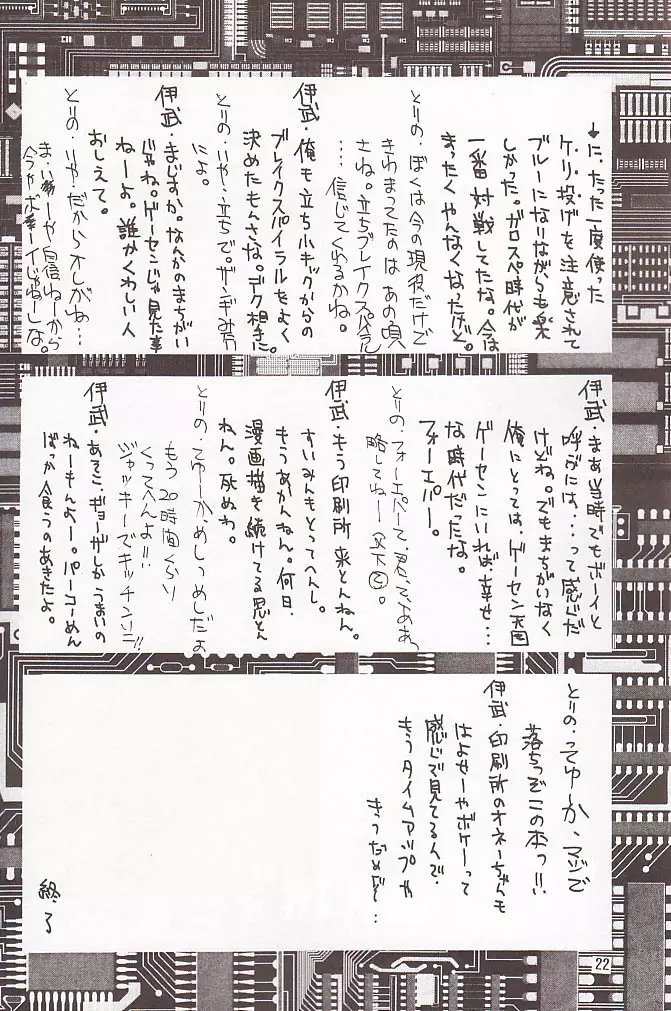 →に、たった一度使った
ケリ投げを注意されて
ブルーになりながらも楽
しかった。ガロスペ時代が
一番対戦してたな。今は
まったくやんなくなったけど。
とりの・ぼくは今の現役だけで
きわまってたのはあの頃
さね。立ちブレイクスパイラル
…信じてくれるかね。
伊武・俺も立ち小キックからの
ブレイクスパイラルをよく
決めたもんさな。デク相手に。
とりの・いや、立ちで。ザンギみた
によ。
伊武・まじすか。なんかのまちがい
じゃね。ゲーセンじゃ見た事
ねーよ。誰かくわしい人
おしえて。
とりの・いや・だからオレがね…
ま、い
や自信ねーから
今やボ
じゃねしな。
伊武・まあ当時でもボーイと
呼ぶには…って感じだ
けどね。でもまちがいなく
俺にとっては、ゲーセン天国
ゲーセンにいれば、幸せ…
な時代だったな。
フォーエバー。
とりの・フォーエバーて、君
略してねー(以下㊙)。
伊武・もう印刷所来とんねん。
すいみんもとってへんし。
もうあかんねん。何日、
漫画描き続けてる思とん
ねん。死ぬわ。
とりの・てゆーか、めしっめしだよ
もう20時間くらい
くってへんよ!!
ジャッキーでキッチンへ!!
伊武・あそこ、ギョーザしかうまいの
ねーもんよー。パーコーめん
ばっか食うのあきたよ。
とりの・ってゆーか、マジで
落ちっぞこの本っ!!
伊武・印刷所のオネーちゃんも
はよせーやボケーって
感じで見てるんで、
もうタイムアップや
きっだめだ…
終了
22